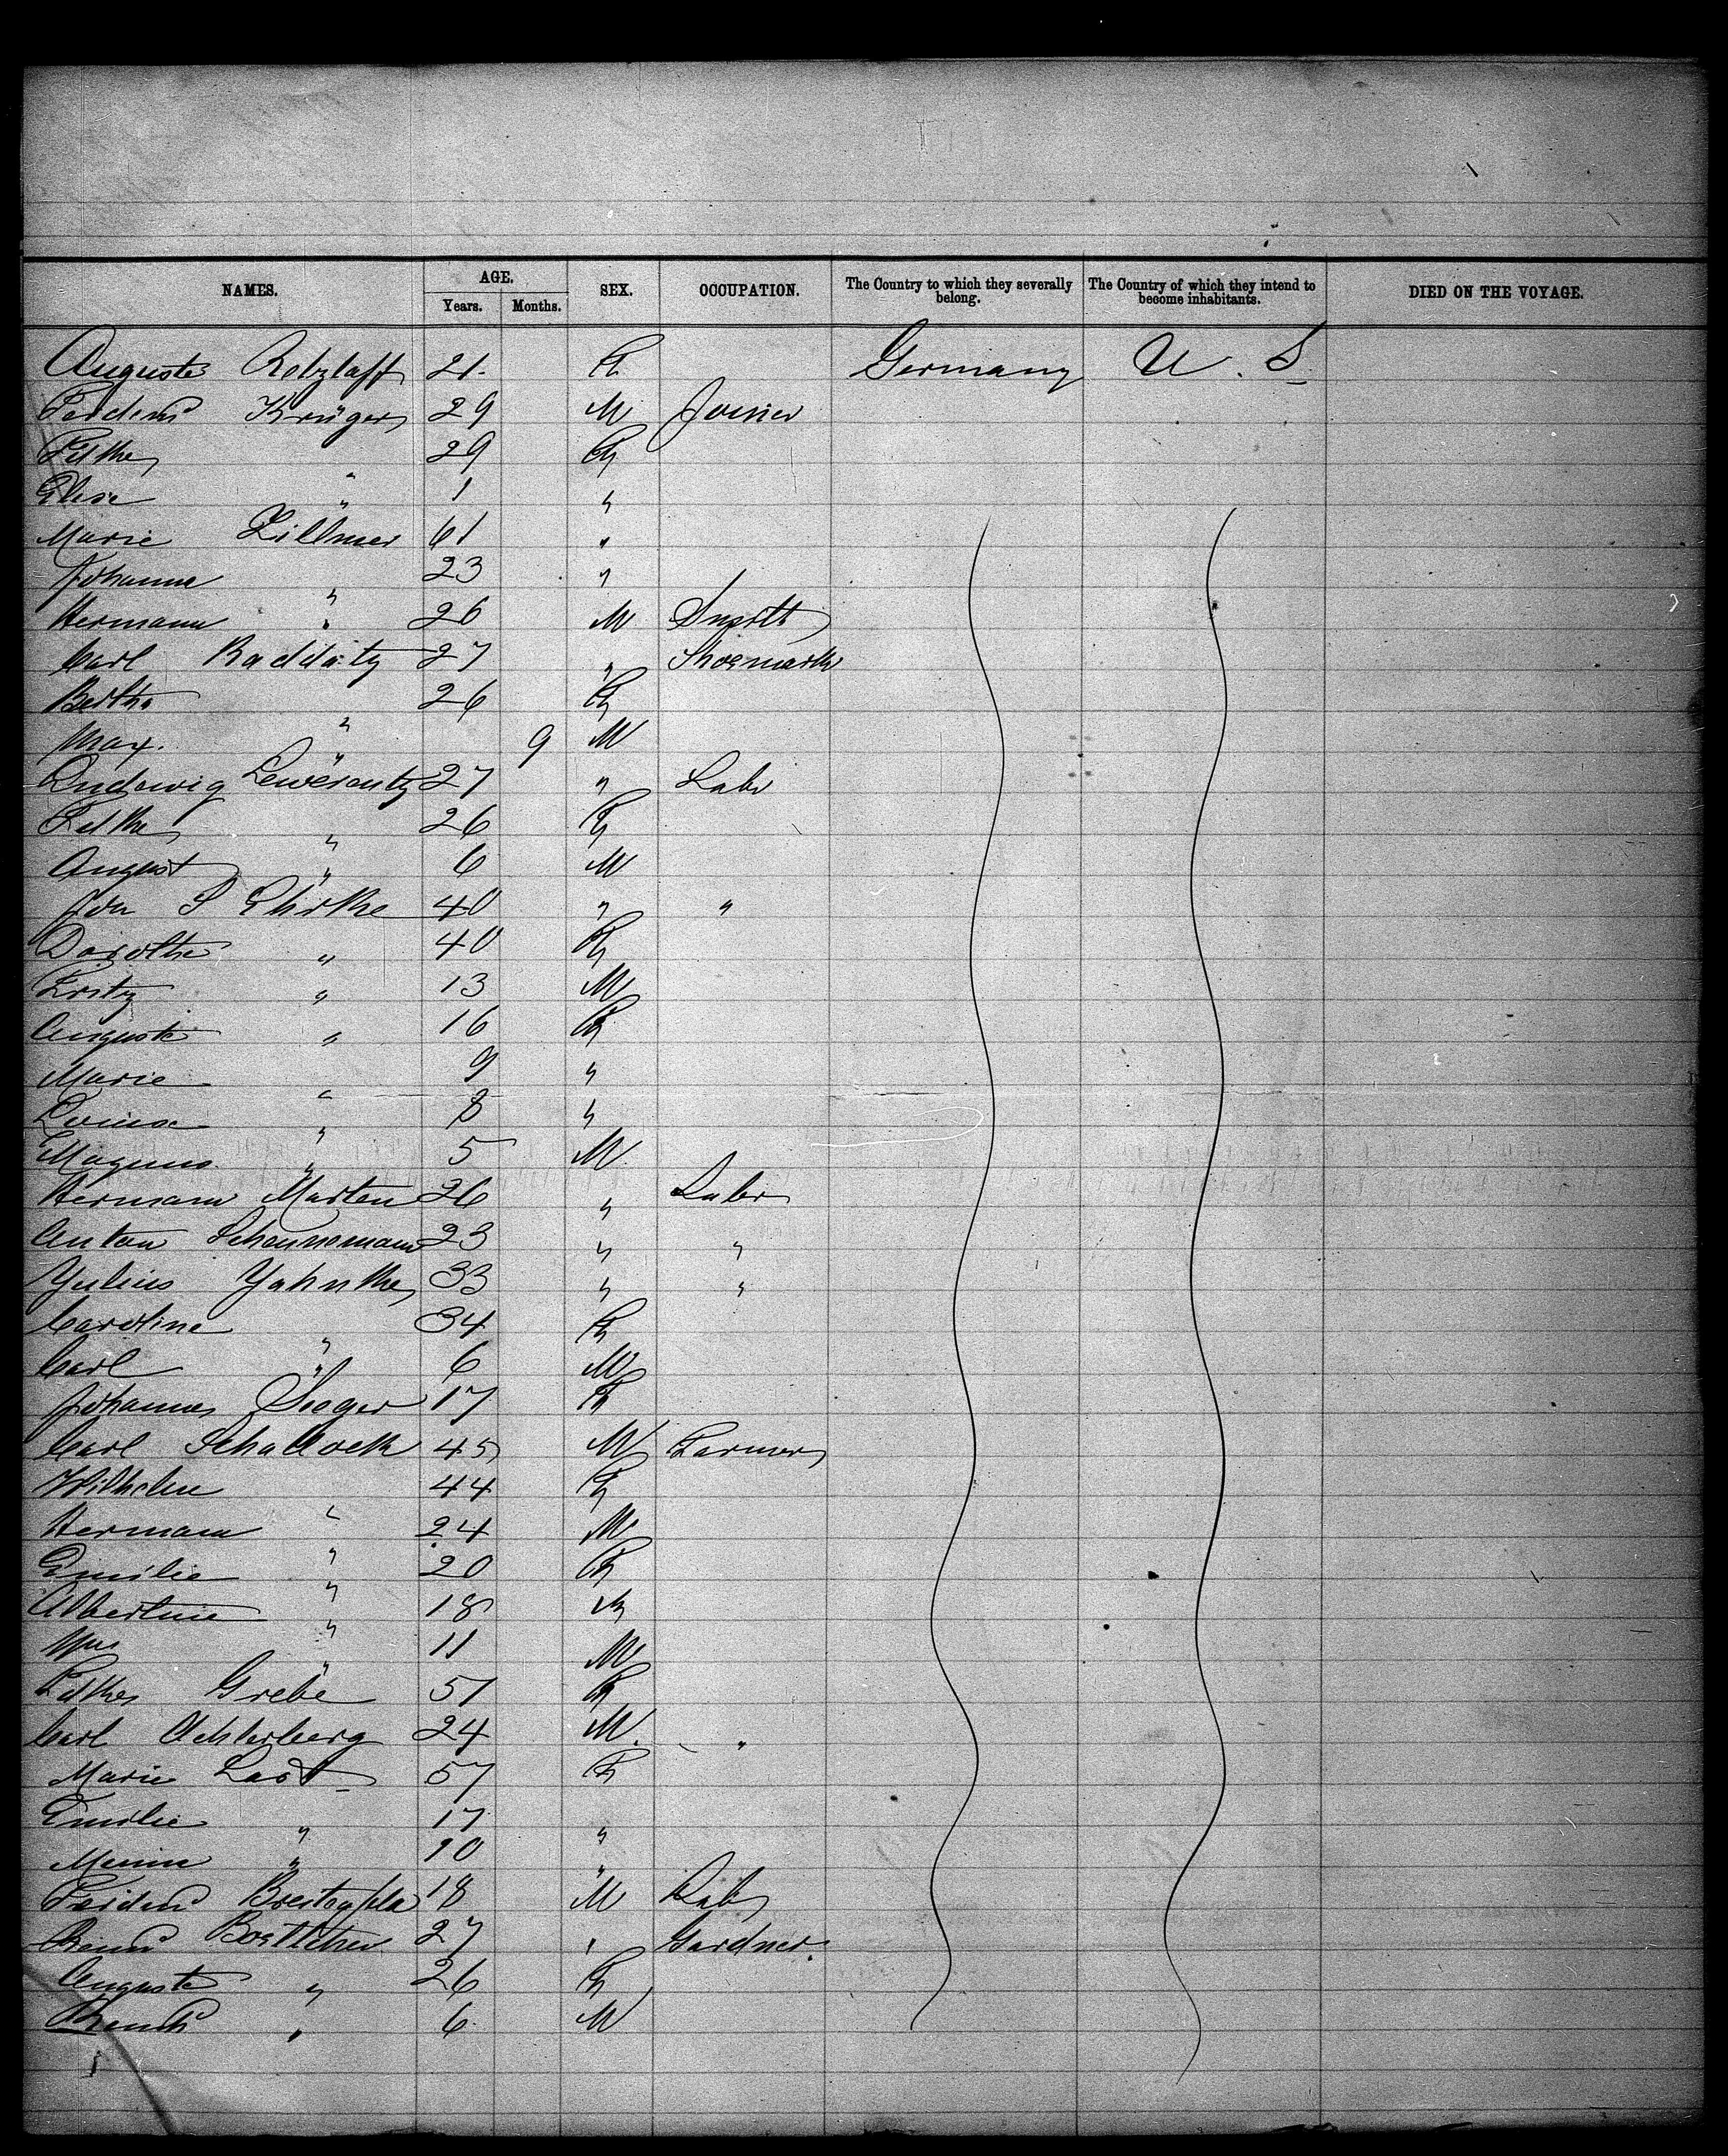 NAMES. AGE. Years. Months. SEX. OCCUPATION. The Country to which they severally belong. The Country of which they intend to become inhabitants. DIED ON THE VOYAGE.
Auguste Retzlaff 21 F Germany U. S.
Ferdind Krüger 29 M Joiner
29 F
Elise " 1 "
Marie Zillmer 61 "
Johanna " 23 "
Hermann " 26 M Smith
Carl Raddatz 27 " Shoemark
Bertha " 26 F
Max. " 9 M
Ludewig Lewerentz 27 " Labr
26 F
August " 6 M
Joh S 40 " "
Dorothe " 40 F
Fritz " 13 M
Auguste " 16 F
Marie " 9 "
Louise " 8 "
Magnus " 5 M
Hermann Marten 26 " Labr
Anton Scheunemann 23 " "
Julius Jahnke 33 " "
Caroline " 34 F
Carl " 6 M
Johannes Seeger 17 F
Carl Schallock 45 M Farmer
Wilhelm " 44 F
Hermann " 24 M
Emilie " 20 F
Albertine " 18 F
" 11 M
Grebe 51 F
Carl Achterberg 24 M "
Marie Last 57 F
Emilie " 17 "
Minna " 10 "
Ferdind 18 M Labr
Boettcher 27 " Gardner.
Auguste " 26 F
" 6 M